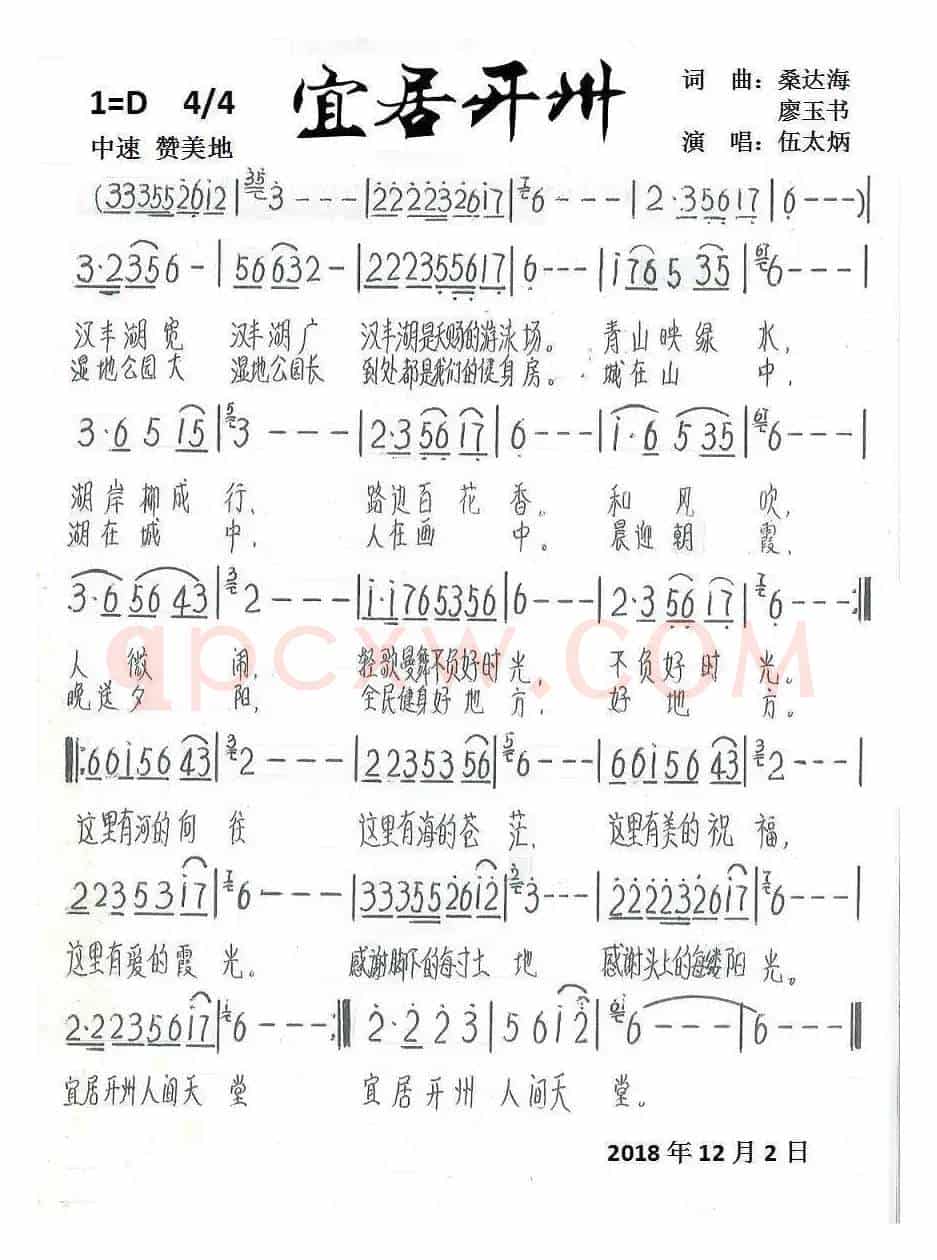 宜居开州
1=D 4/4
中速 赞美地
词 曲：桑达海
廖玉书
演 唱：伍太炳
(333552612|3---|222232617|6---|2·35617|6---)|
3·2356-|56632-|222355617|6---|176535|6---|
汉丰湖宽 汉丰湖广 汉丰湖是天赐的游泳场。 青山映绿水，
湿地公园大 湿地公园长 到处都是我们的健身房。 城在山中，
3·6515|3---|2·35617|6---|1·6535|6---|
湖岸柳成行， 路边百花香。 和风吹，
湖在城中， 人在画中。 晨迎朝霞，
3·65643|2---|1·1765356|6---|2·35617|6---:‖
人微闹， 轻歌曼舞不负好时光， 不负好时光。
晚送夕阳， 全民健身好地方， 好地方。
qpcxw.com
‖:6615643|2---|2235356|6---|6615643|2---|
这里有河的向往 这里有海的苍茫， 这里有美的祝福，
2235317|6---|333552612|3---|222232617|6---|
这里有爱的霞光。 感谢脚下的每寸土地 感谢头上的每缕阳光。
2·2235617|6---:‖2·223|5612|6---|6---‖
宜居开州人间天堂 宜居开州人间天堂。
2018年12月2日